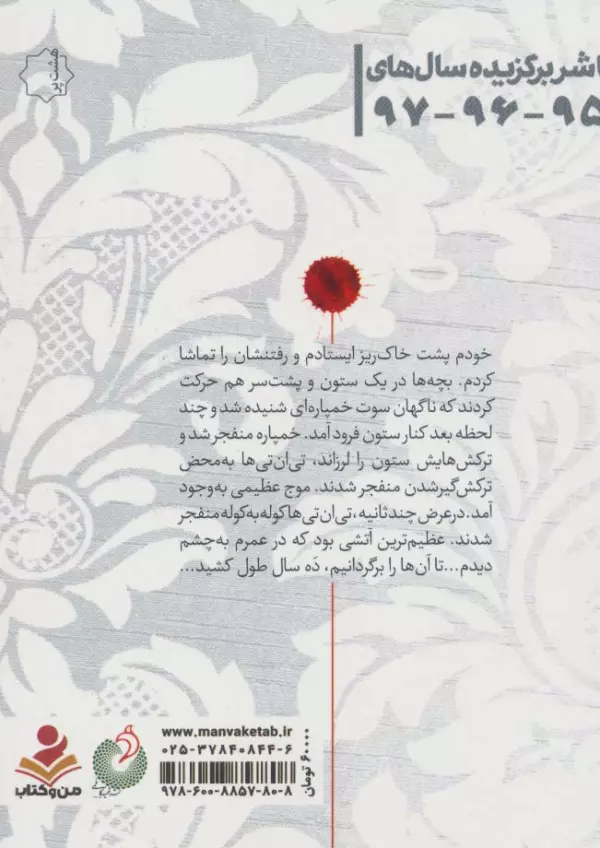 هشت پر
ناشر برگزیده سال‌های
۹۵-۹۶-۹۷
خودم پشت خاک‌ریز ایستادم و رفتنشان را تماشا
کردم. بچه‌ها در یک ستون و پشت‌سر هم حرکت
کردند که ناگهان سوت خمپاره‌ای شنیده شد و چند
لحظه بعد کنار ستون فرود آمد. خمپاره منفجر شد و
ترکش‌هایش ستون را لرزاند، تی‌ان‌تی‌ها به‌محض
ترکش‌گیرشدن منفجر شدند. موج عظیمی به‌وجود
آمد. در عرض چند ثانیه، تی‌ان‌تی‌ها کوله‌به‌کوله منفجر
شدند. عظیم‌ترین آتشی بود که در عمرم به‌چشم
دیدم...تا آن‌ها را برگردانیم، دَه سال طول کشید...
www.manvaketab.ir
۰۲۵-۳۷۸۴۰۸۴۴-۶
۹۷۸-۶۰۰-۸۸۵۷-۸۰-۸
۶۰۰۰۰ تومان
من و کتاب